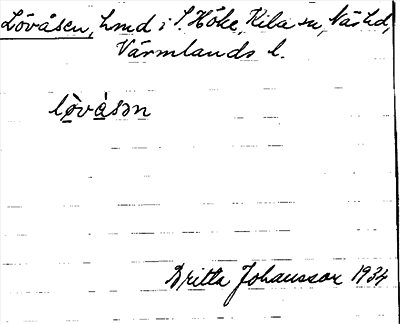 Lövåsen, hmd i S. Höke, Kila sn, Näs hd,
Värmlands l.
lòvàsən
Britta Johansson 1934